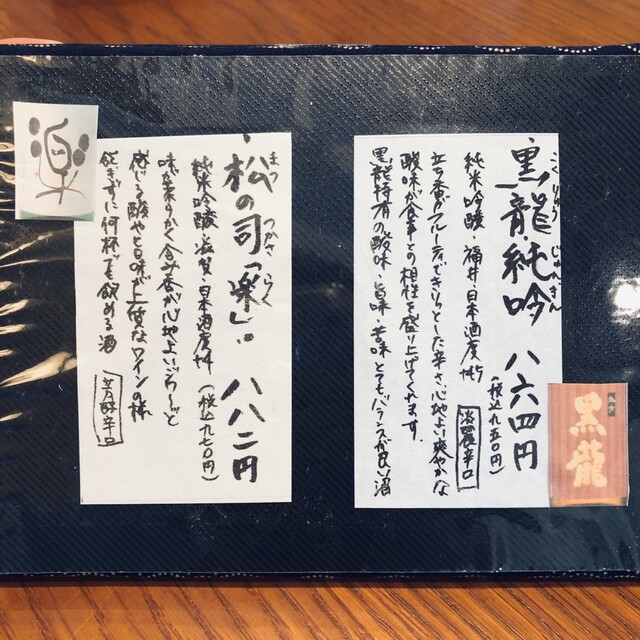 黒龍純吟 八六四円
こくりゅう じゅんぎん
(税込九五〇円)
純米吟醸 福井 日本酒度
淡麗辛口
立ち香がフルーティできりっとした辛さ、心地よい爽やかな
酸味が食事との相性を盛り上げてくれます。
黒龍特有の酸味・旨味・苦味とてもバランスが良い酒
福井
黒龍
松の司「楽」。 八八二円
まつ つかさ らく
純米吟醸 滋賀 日本酒度 (税込九七〇円)
味が柔らかく含み香が心地よい。じわーっと
感じる酸や旨味が上質なワインの様
飽きずに何杯でも飲める酒
芳醇辛口
楽